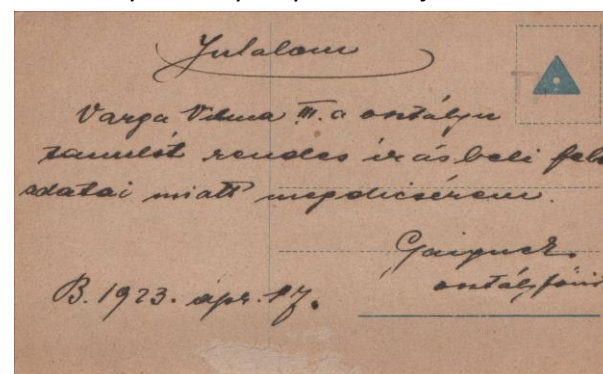 Jutalom
Varga Vilma III. a osztályu
tanulót rendes irásbeli fel-
adatai miatt megdicsérem.
osztályfőnö
B. 1923. ápr. 17.